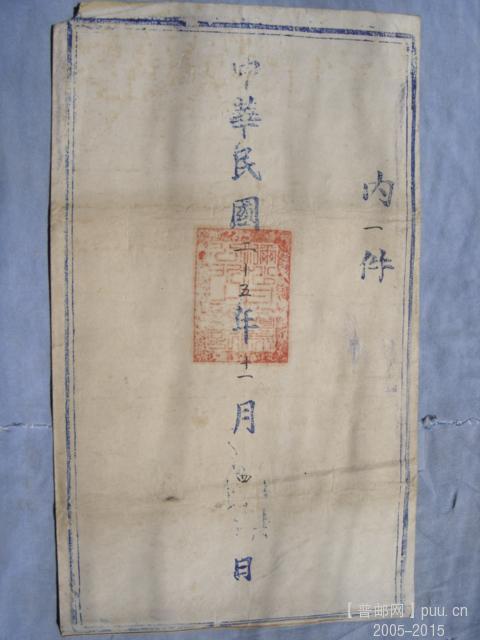 内一件
中華民國二十五年十一月四日
【普邮网】puu.cn
2005-2015